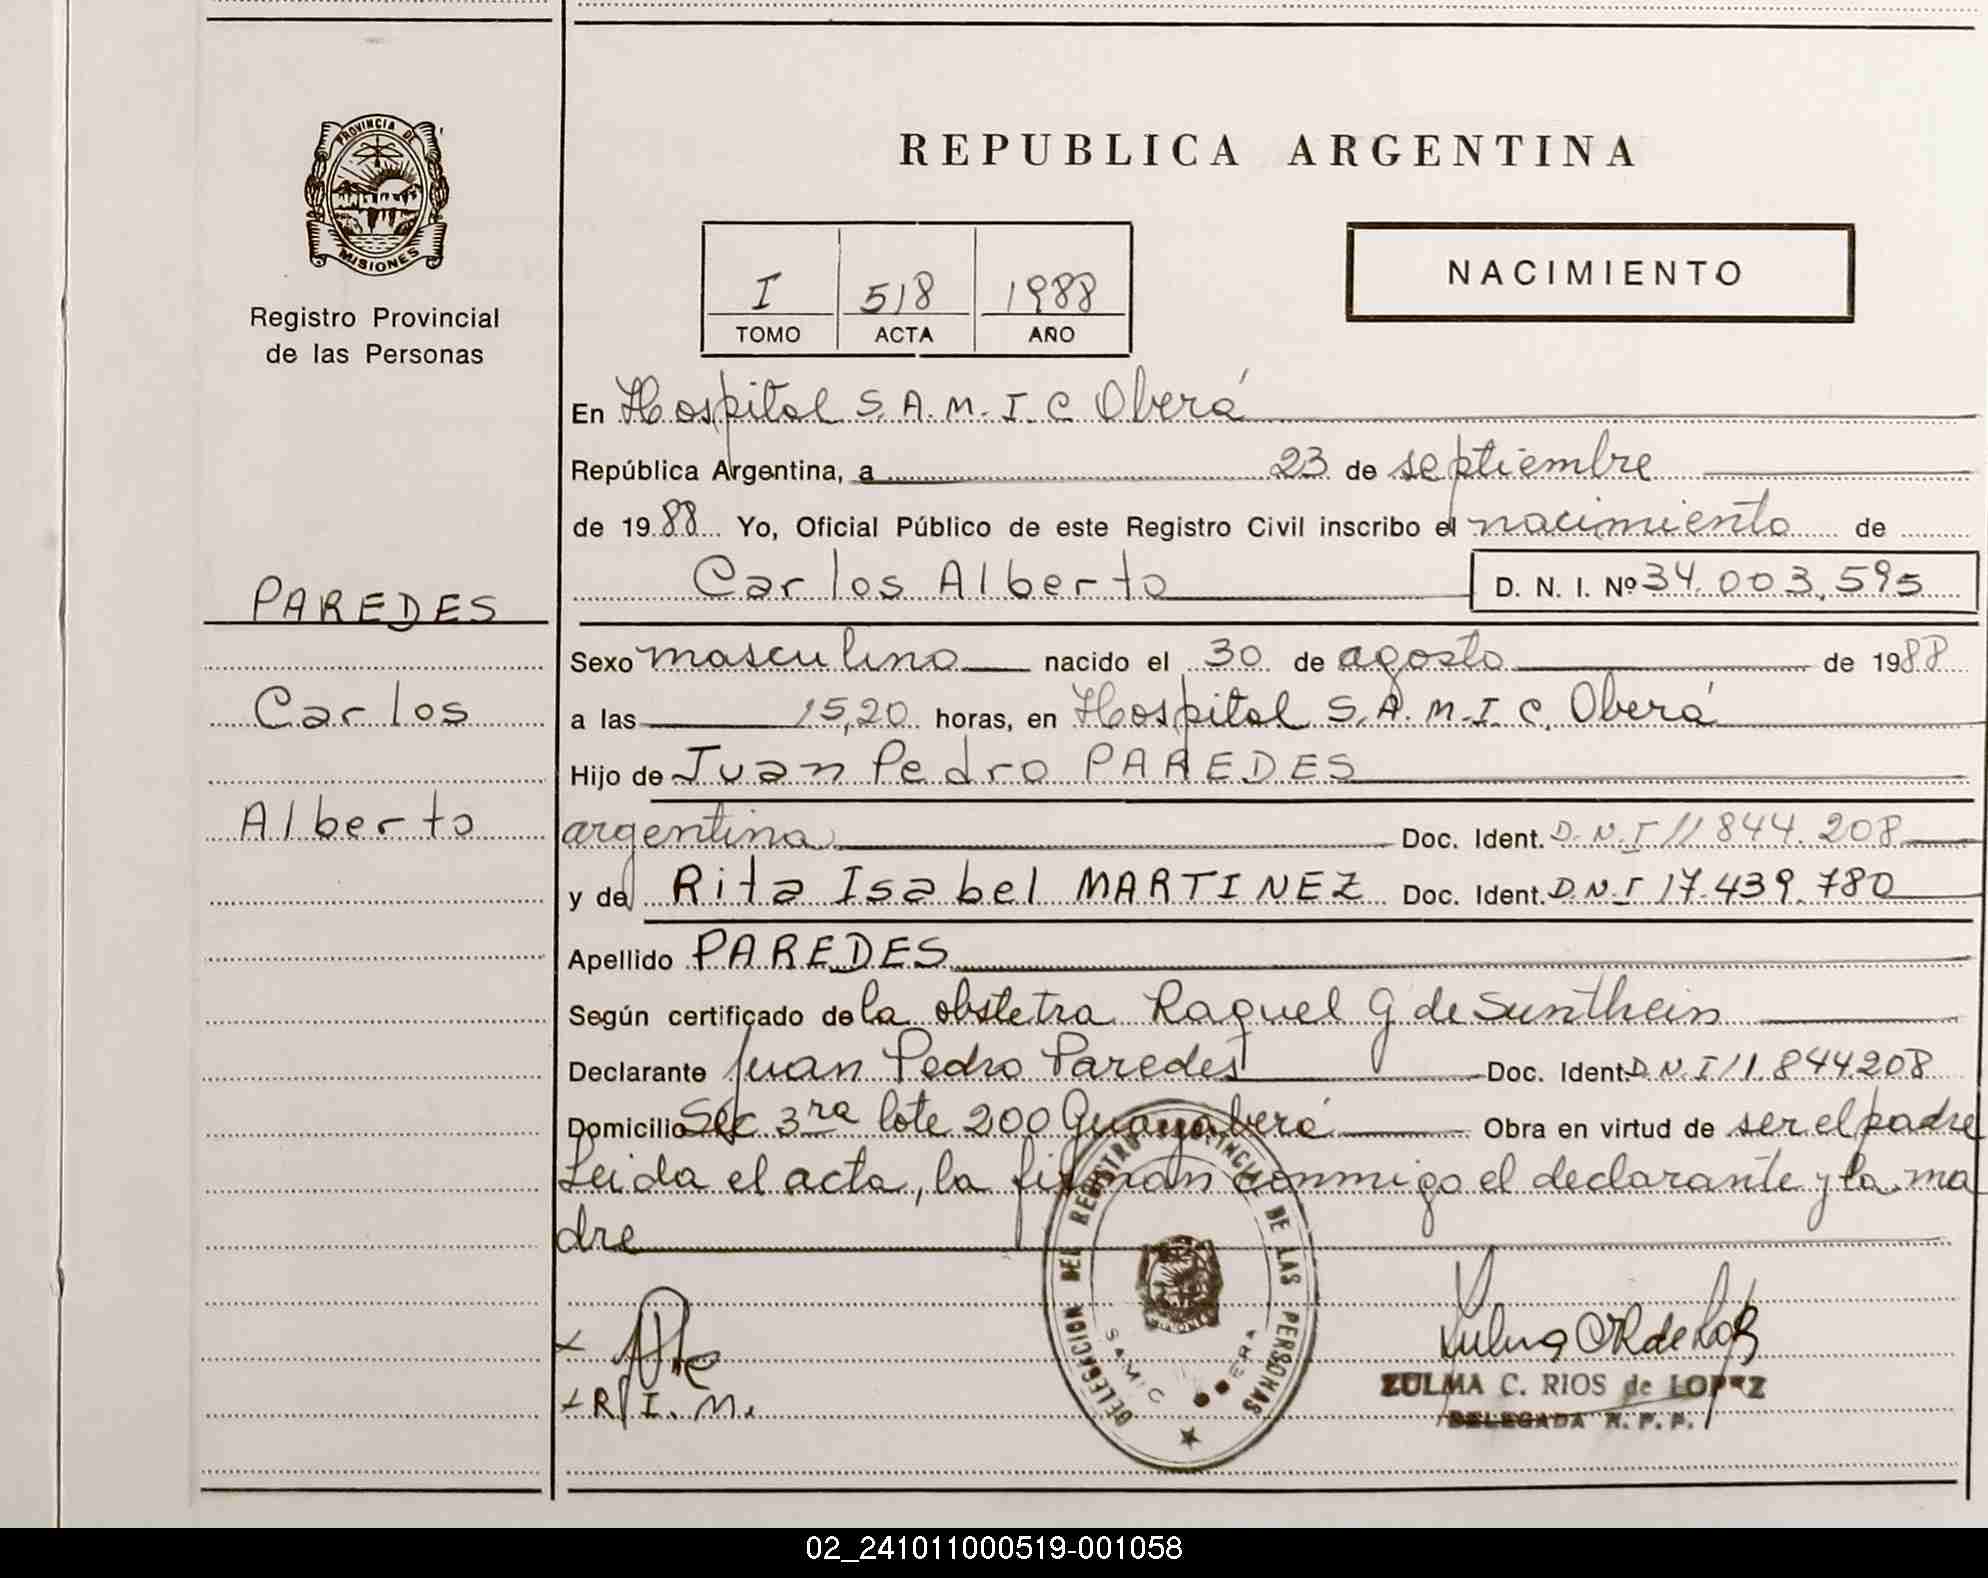 PROVINCIA DE
MISIONES
Registro Provincial
de las Personas
PAREDES
Carlos
Alberto
REPUBLICA ARGENTINA
I 518 1988
TOMO ACTA AÑO
NACIMIENTO
En Hospital S.A.M.I.C Oberá
República Argentina, a 23 de septiembre
de 1988 Yo, Oficial Público de este Registro Civil inscribo el nacimiento de
Carlos Alberto D. N. I. Nº 34.003.595
Sexo masculino nacido el 30 de agosto de 1988
a las 15,20 horas, en Hospital S.A.M.I.C. Oberá
Hijo de Juan Pedro PAREDES
argentina Doc. Ident. D.N.I 11.844.208
y de Rita Isabel MARTINEZ Doc. Ident. D.N.I 17.439.780
Apellido PAREDES
Según certificado de la obstetra Raquel G de Sunthein
Declarante Juan Pedro Paredes Doc. Ident. D.N.I 11.844.208
Domicilio Sec 3ra lote 200 Guayaberá Obra en virtud de ser el padre
Leida el acta, la firman conmigo el declarante y la ma
dre
DELEGACION DEL REGISTRO PROVINCIAL DE LAS PERSONAS
MISIONES
SAMIC OBERA
R. I. M.
ZULMA C. RIOS de LOPEZ
DELEGADA R. P. P.
02_241011000519-001058